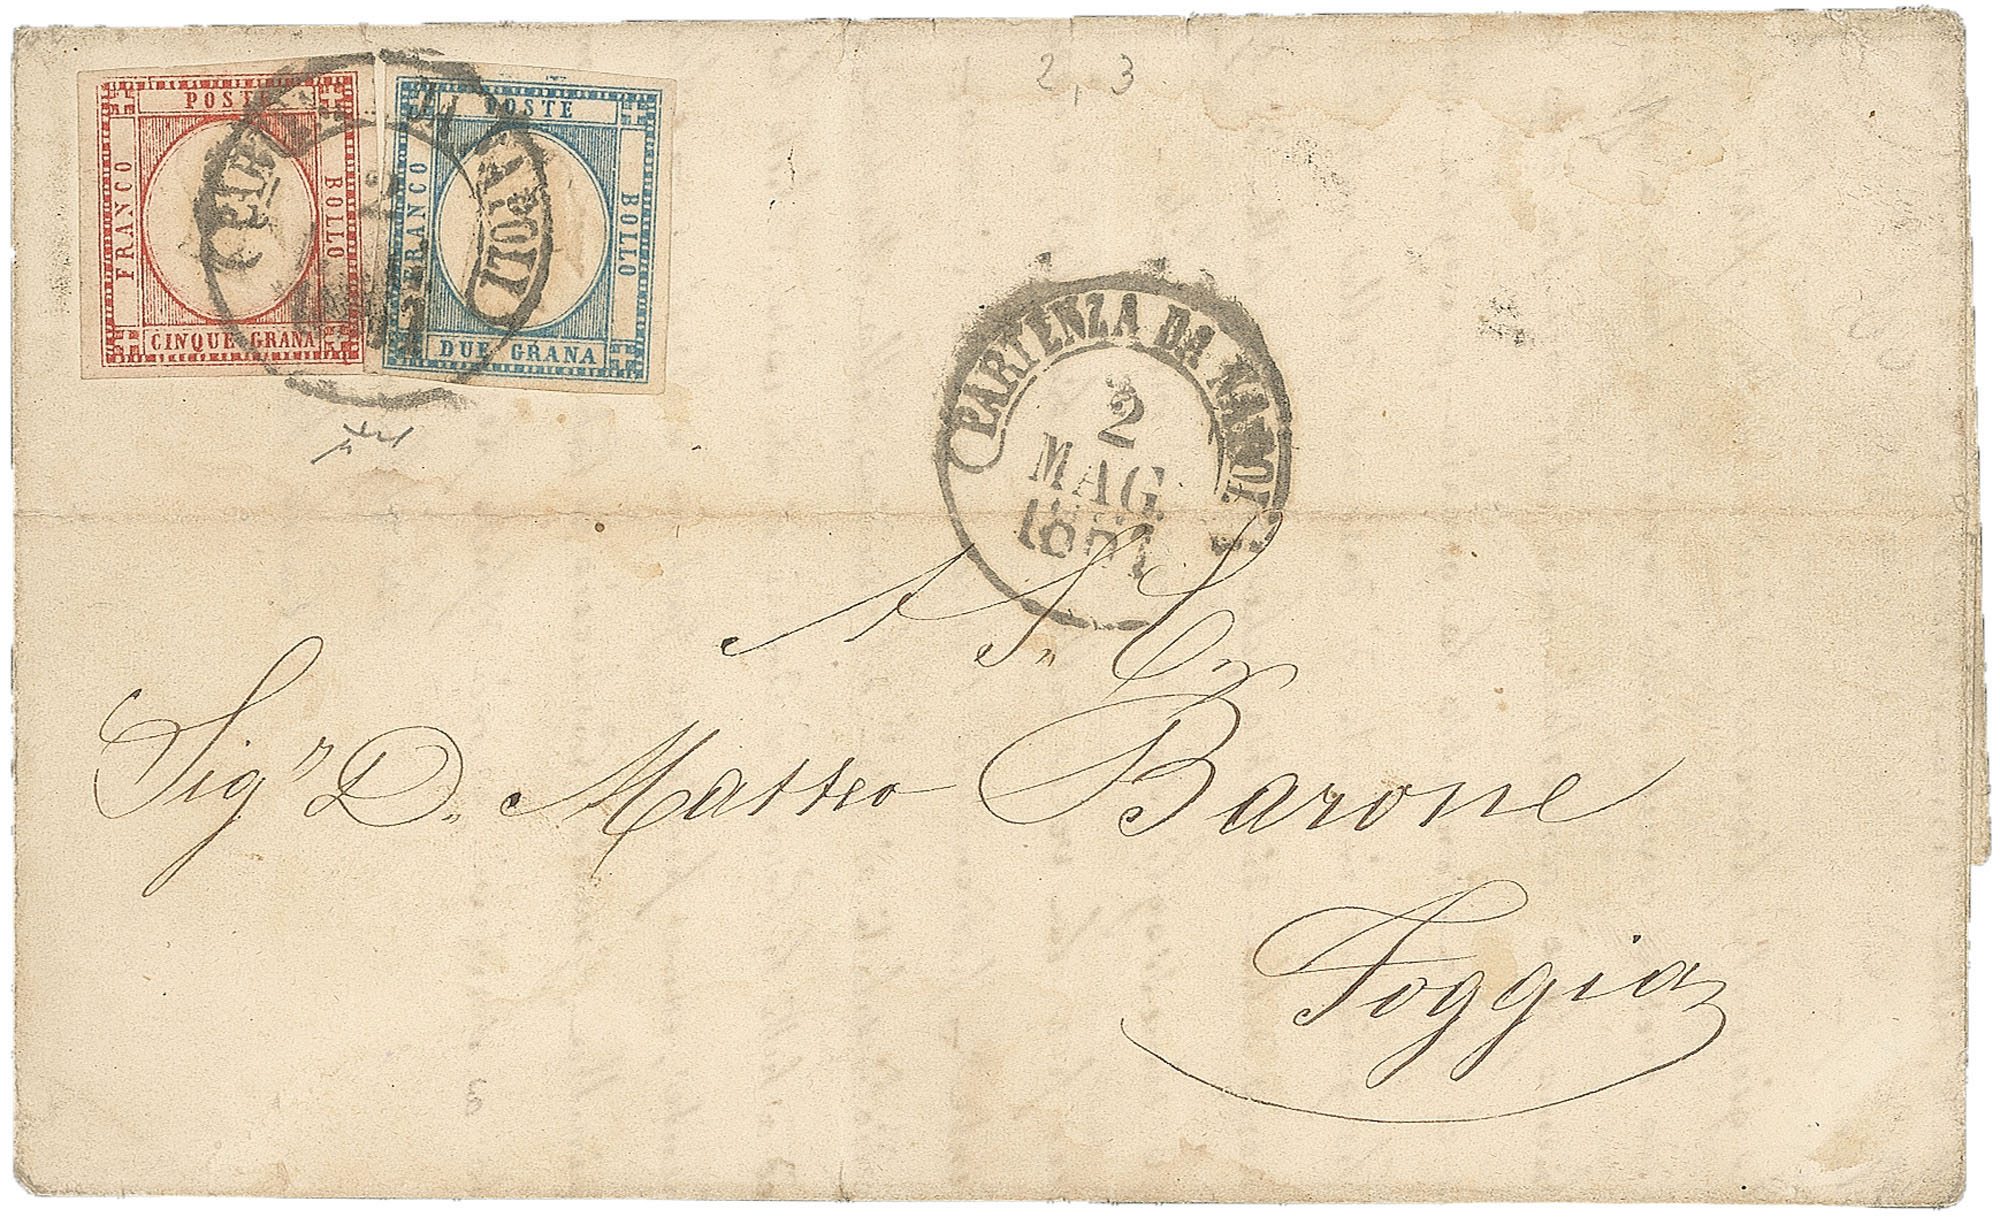 2,3
POSTE
FRANCO
BOLLO
CINQUE GRANA
POSTE
FRANCO
BOLLO
DUE GRANA
PARTENZA DA NAPOLI
2
MAG.
A S. E.
Sigʳ D. Matteo Barone
Foggia
5